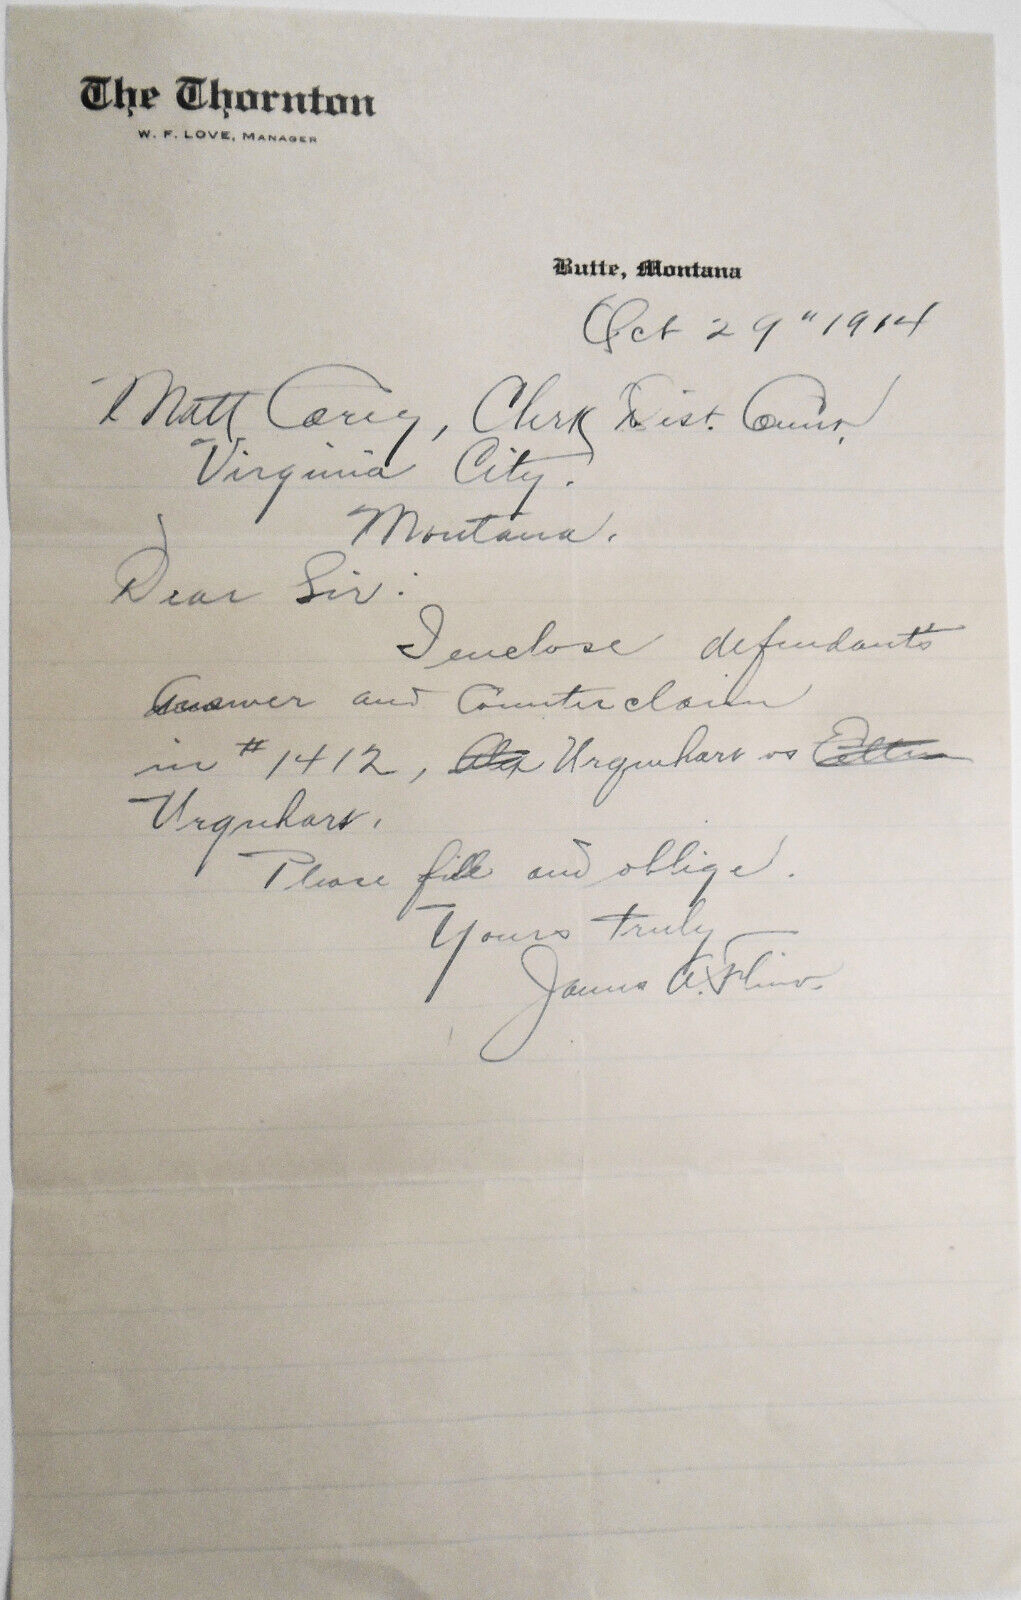 The Thornton
W. F. LOVE, MANAGER
Butte, Montana
Oct 29" 1914
Matt Carey, Clerk Dist. Court,
Virginia City.
Montana.
Dear Sir:
I enclose defendant's
Answer and Counterclaim
in # 1412, Urquhart vs
Urquhart.
Please file and oblige.
Yours truly
James A.